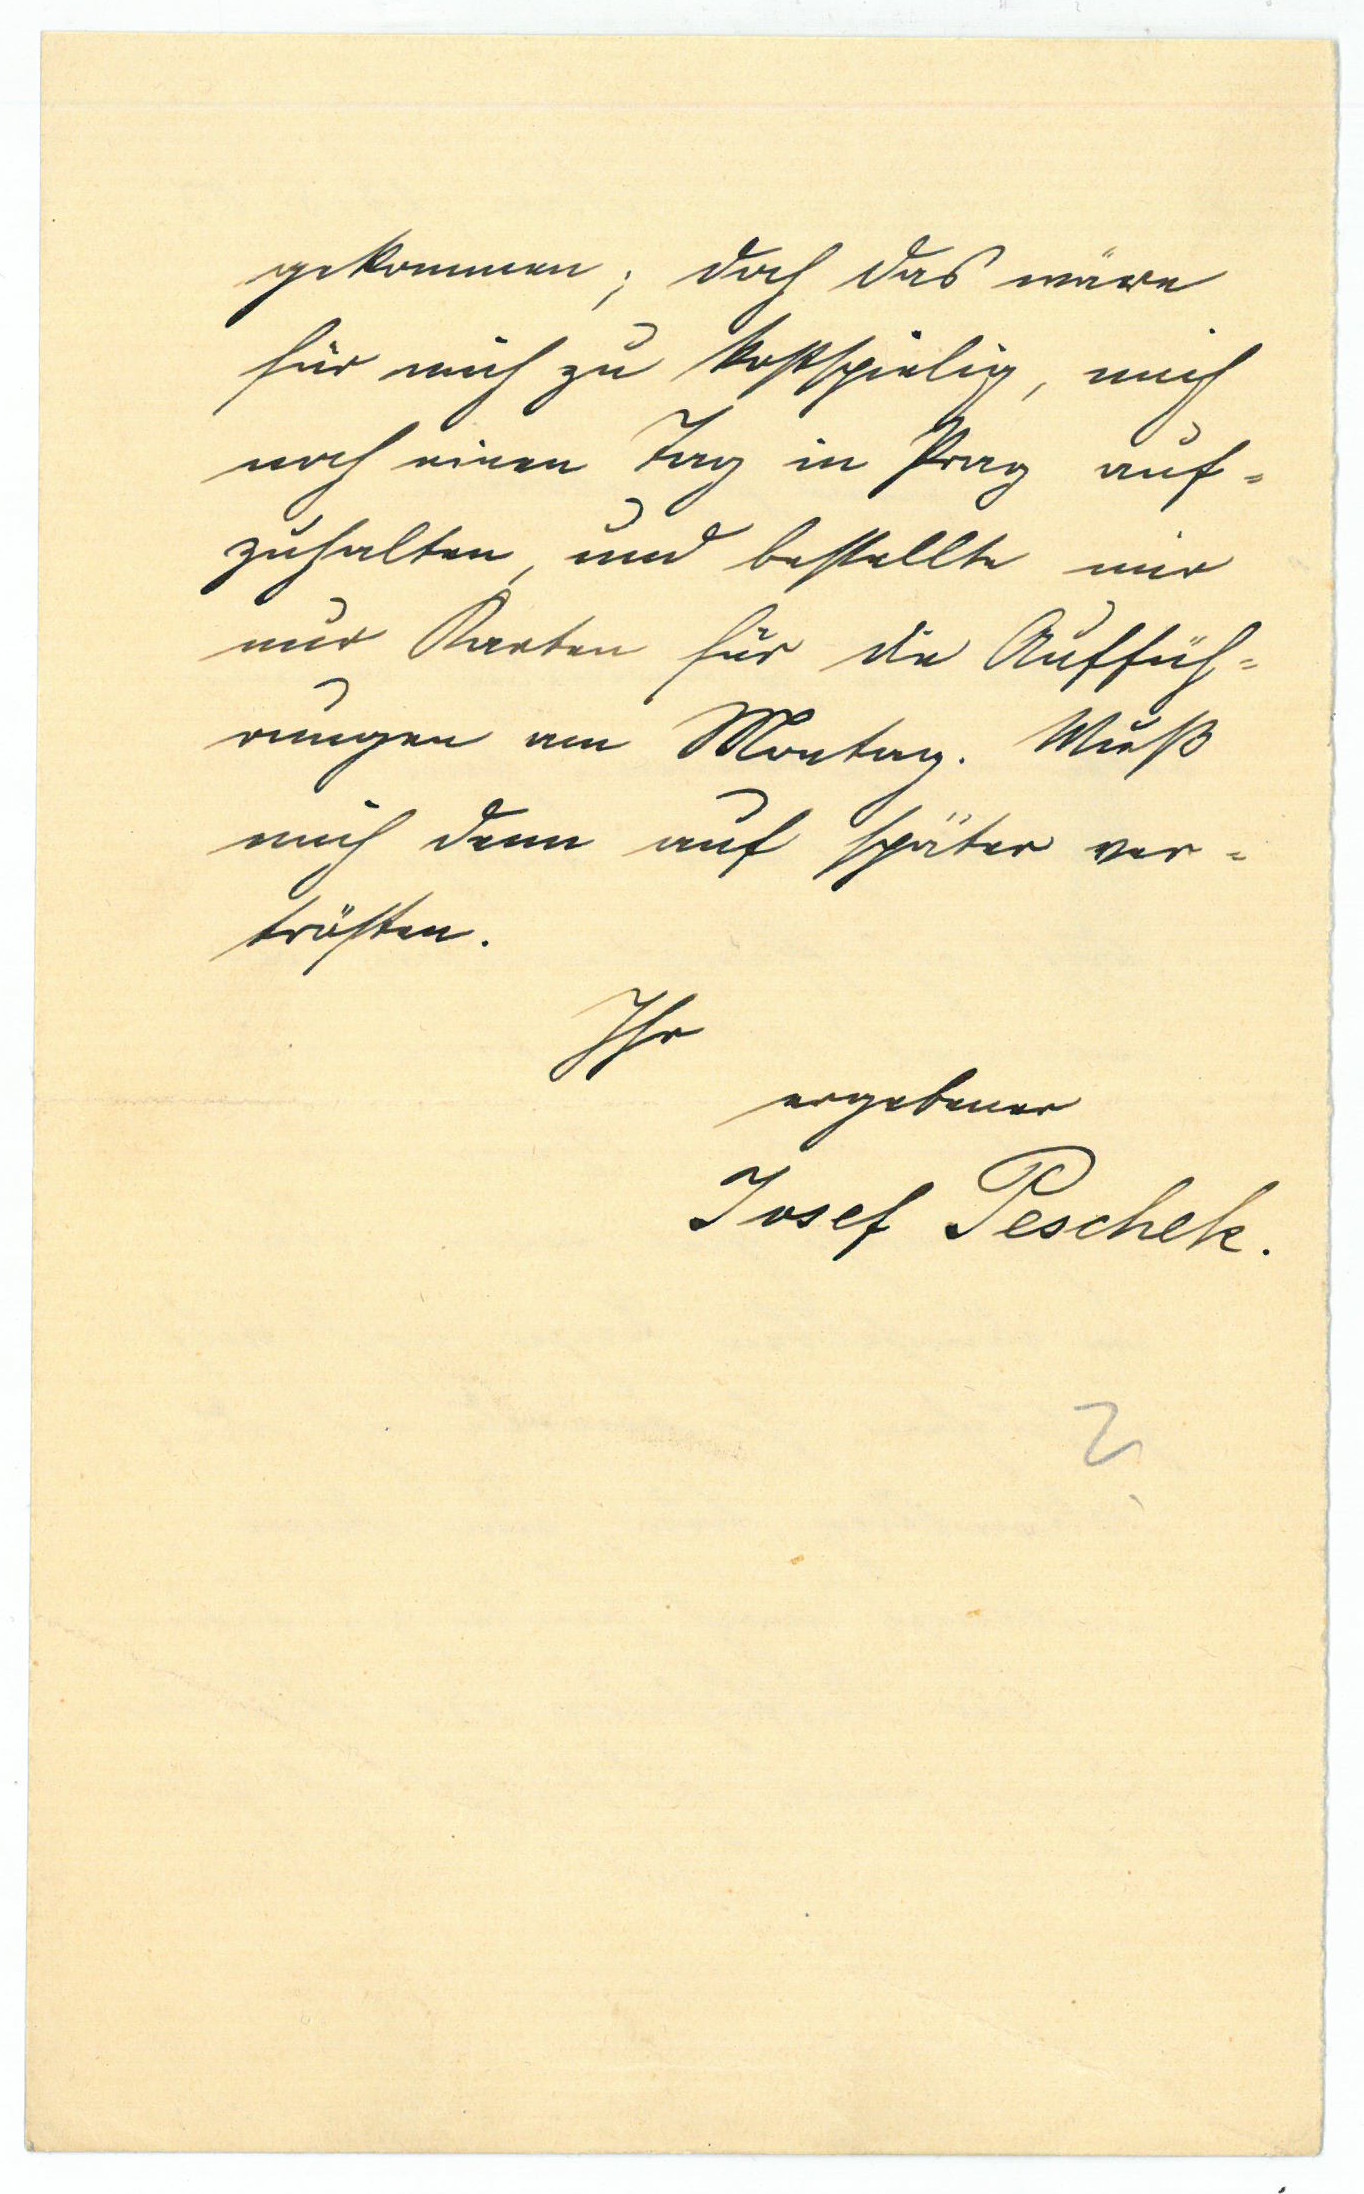 gekommen; doch das wäre
für mich zu kostspielig, mich
noch einen Tag in Prag auf=
zuhalten, und bestellte mir
nur Karten für die Auffüh=
rungen am Montag. Muß
mich denn auf später ver=
trösten.
Ihr
ergebener
Josef Peschek.